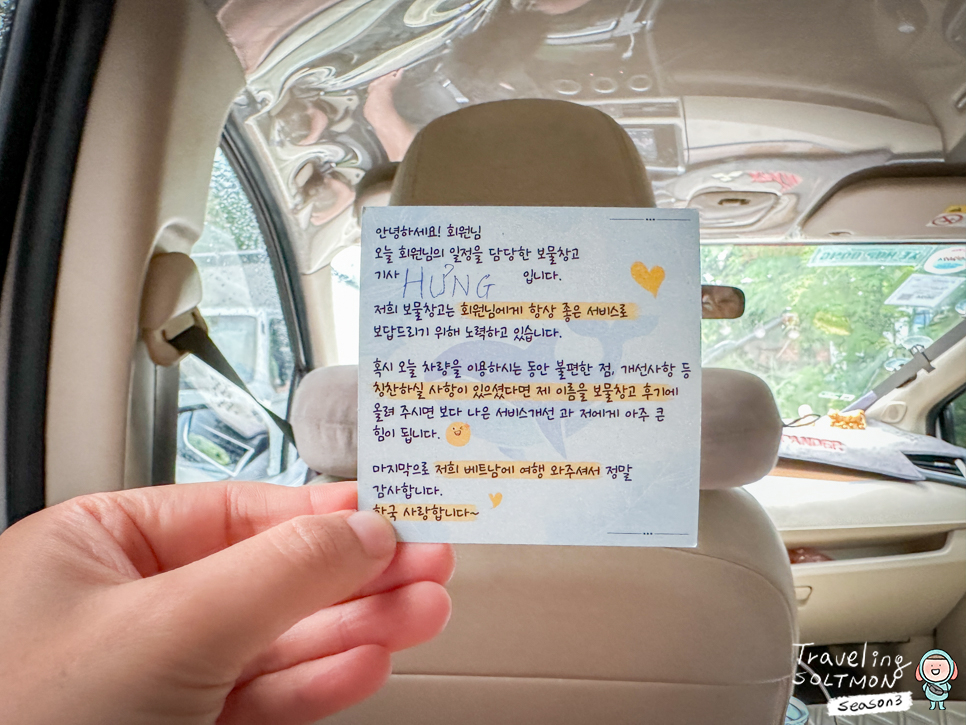 안녕하세요! 회원님
오늘 회원님의 일정을 담당한 보물창고
기사 HƯNG 입니다.
저희 보물창고는 회원님에게 항상 좋은 서비스로
보답드리기 위해 노력하고 있습니다.
혹시 오늘 차량을 이용하시는 동안 불편한 점, 개선사항 등
칭찬하실 사항이 있으셨다면 제 이름을 보물창고 후기에
올려 주시면 보다 나은 서비스개선 과 저에게 아주 큰
힘이 됩니다.
마지막으로 저희 베트남에 여행 와주셔서 정말
감사합니다.
한국 사랑합니다~
Traveling
SOLTMON
season3